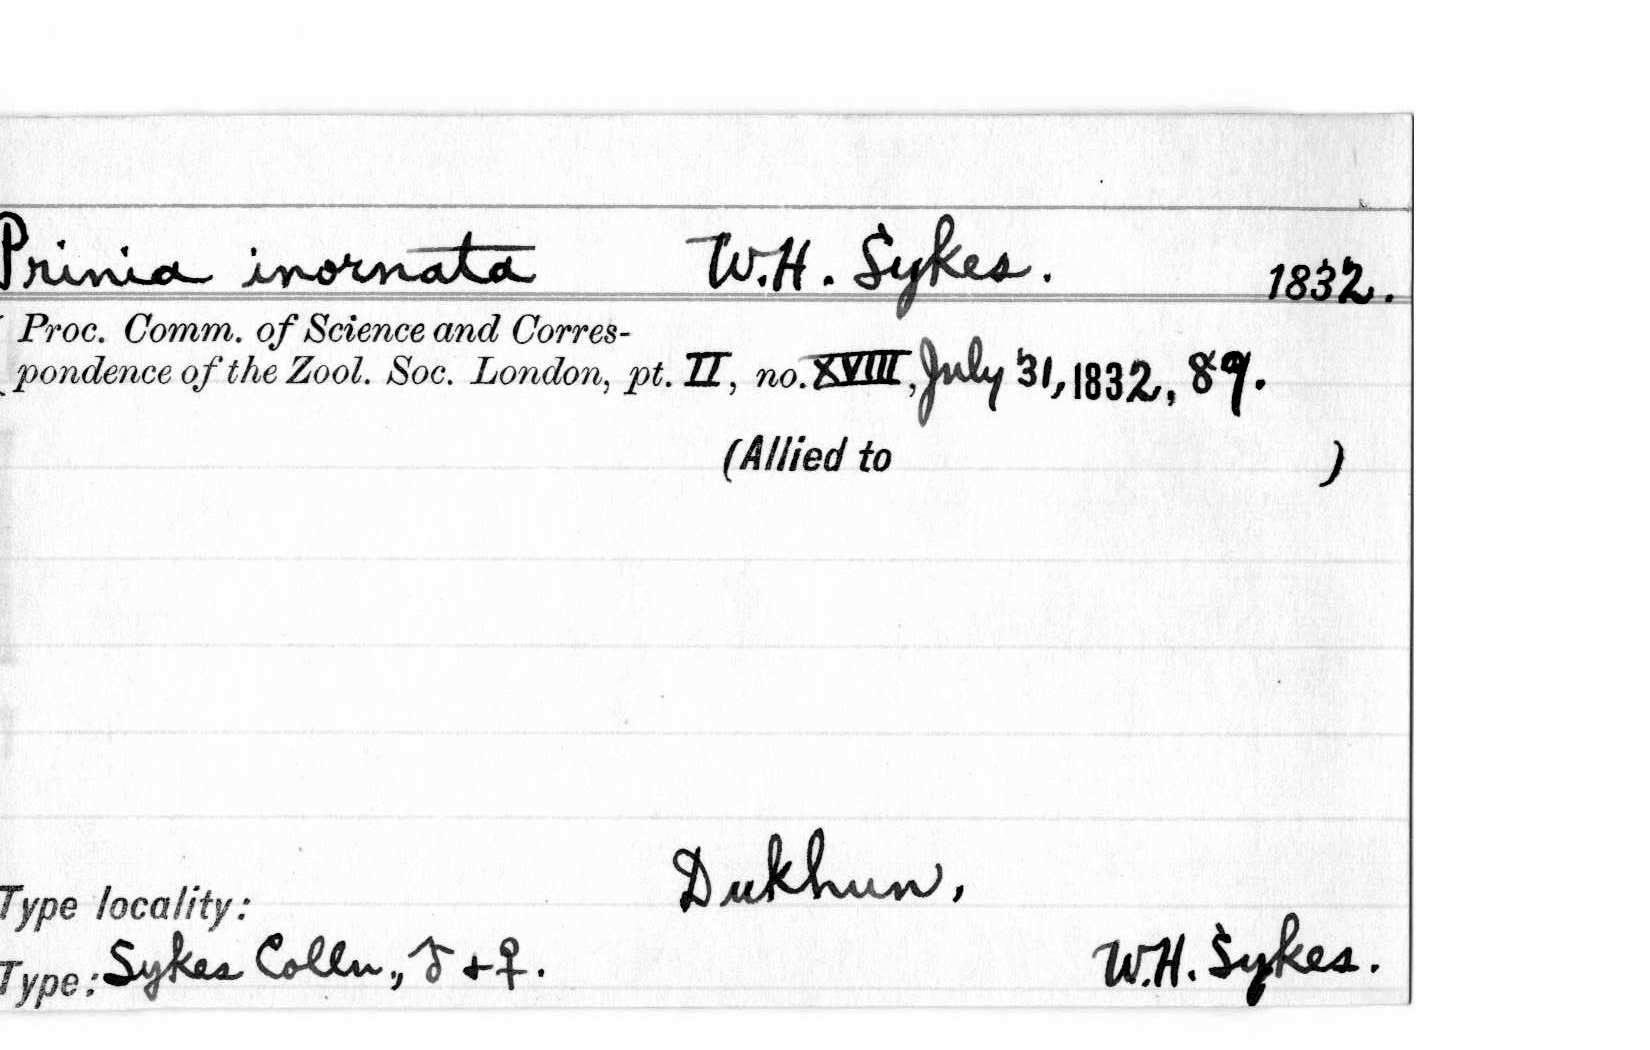 Prinia inornata W.H. Sykes. 1832.
( Proc. Comm. of Science and Corres-
pondence of the Zool. Soc. London, pt. II, no. XVIII, July 31, 1832, 89.
(Allied to )
Type locality: Dukhun,
Type: Sykes Colln., ♂ + ♀. W.H. Sykes.